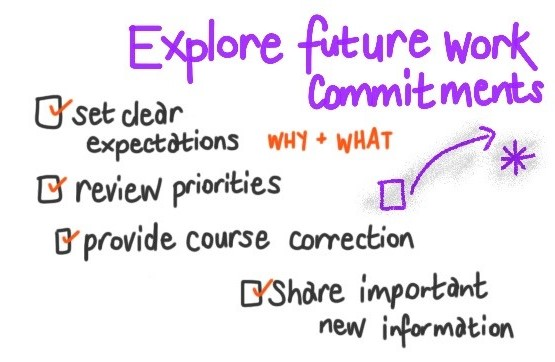 Explore future work
Commitments
set clear
expectations WHY + WHAT
review priorities
provide course correction
Share important
new information